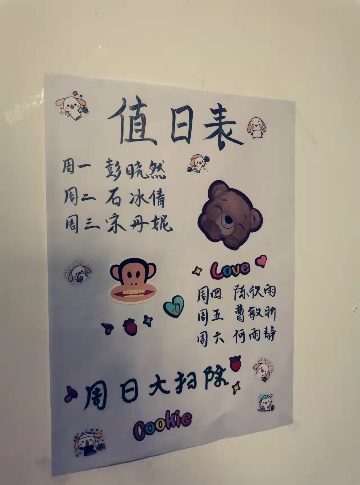 值日表
周一 彭晓然
周二 石冰倩
周三 宋丹妮
Love
周四 陈秋雨
周五 曹敏昕
周六 何雨静
周日大扫除
Cookie